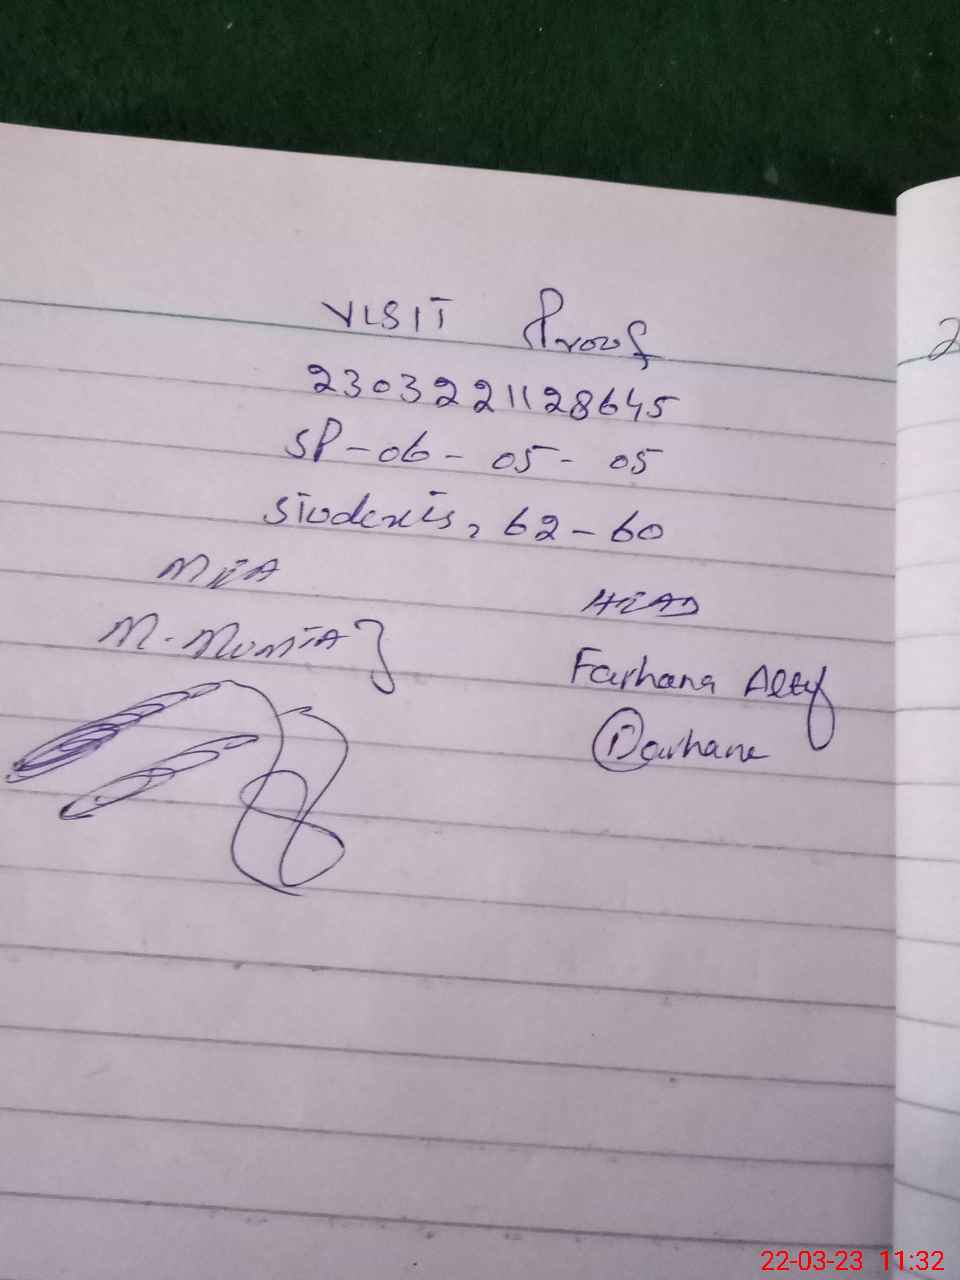 VISIT Proof
2303221128645
SP-06-05-05
Students, 62-60
MEA
HEAD
M. Mumtaz
Farhana Altaf
Farhana
2
22-03-23 11:32